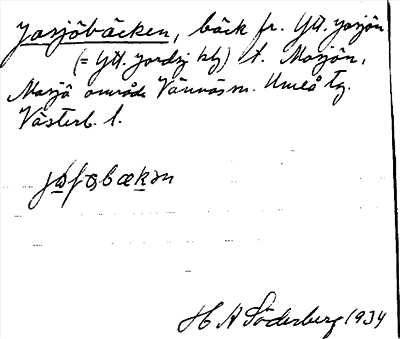 Jasjöbäcken, bäck fr. Ytt. Jasjön
(= Ytt. Jordsj kbg) t. Masjön,
Masjö område Vännäs sn. Umeå tg.
Västerb. l.
H A Söderberg 1934